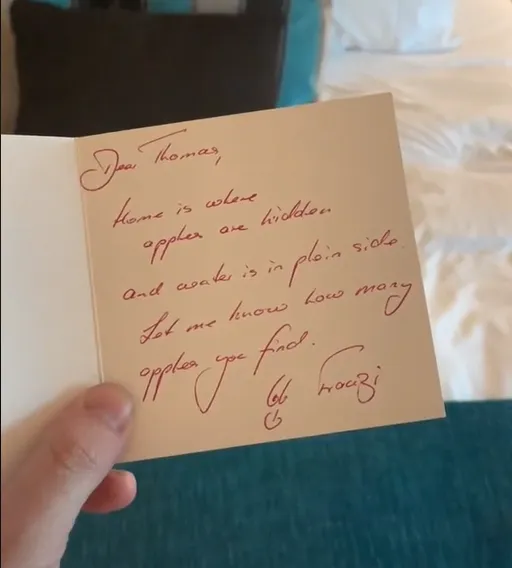 Dear Thomas,
Home is where
apples are hidden
and water is in plain side.
Let me know how many
apples you find.